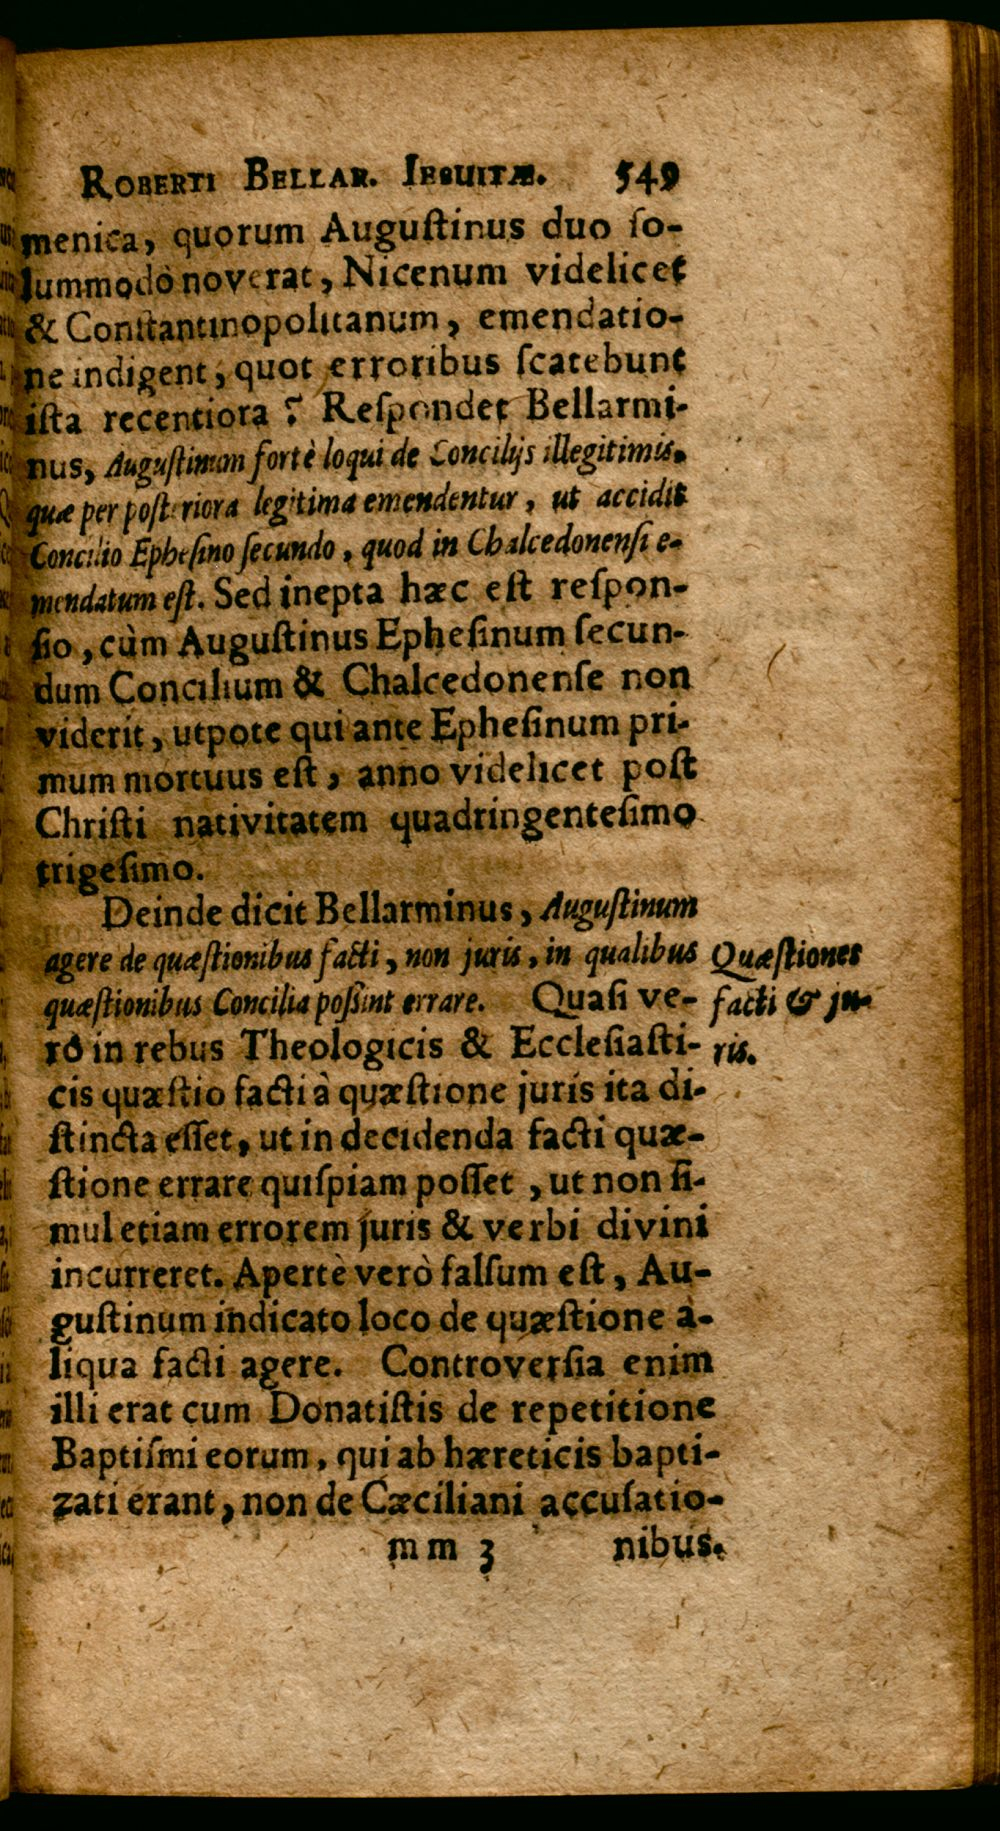 ROBERTI BELLAR. IESUITÆ. 549
menica, quorum Auguſtinus duo ſo-
lummodò noverat, Nicenum videlicet
& Conſtantinopolitanum, emendatio-
ne indigent, quot erroribus ſcatebunt
iſta recentiora? Reſpondet Bellarmi-
nus, Auguſtinum fortè loqui de Concilijs illegitimis,
quæ per poſteriora legitima emendentur, ut accidit
Concilio Epheſino ſecundo, quod in Chalcedonenſi e-
mendatum eſt. Sed inepta hæc eſt reſpon-
ſio, cùm Auguſtinus Epheſinum ſecun-
dum Concilium & Chalcedonenſe non
viderit, utpote qui ante Epheſinum pri-
mum mortuus eſt, anno videlicet poſt
Chriſti nativitatem quadringenteſimo
trigeſimo.
Deinde dicit Bellarminus, Auguſtinum
agere de quæſtionibus facti, non juris, in qualibus
quæſtionibus Concilia poſſint errare. Quaſi ve-
rò in rebus Theologicis & Eccleſiaſti-
cis quæſtio facti à quæſtione juris ita di-
ſtincta eſſet, ut in decidenda facti quæ-
ſtione errare quiſpiam poſſet, ut non ſi-
mul etiam errorem juris & verbi divini
incurreret. Apertè verò falſum eſt, Au-
guſtinum indicato loco de quæſtione a-
liqua facti agere. Controverſia enim
illi erat cum Donatiſtis de repetitione
Baptiſmi eorum, qui ab hæreticis bapti-
zati erant, non de Cæciliani accuſatio-
mm 3 nibus.
Quæſtiones
facti & ju-
ris.